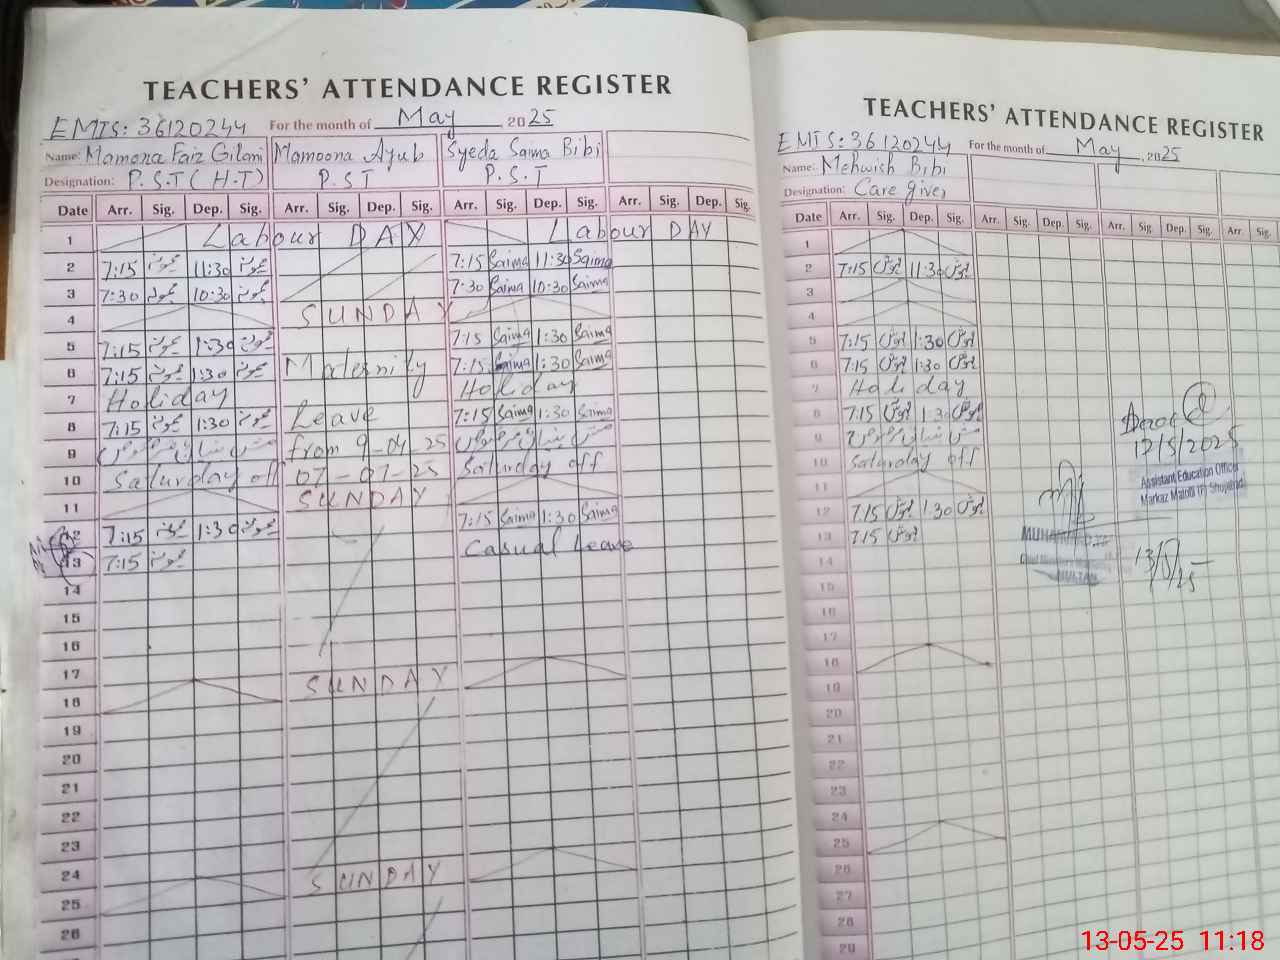 TEACHERS' ATTENDANCE REGISTER
EMIS: 36120244 For the month of May 2025
Name: Mamona Faiz Gilani Mamoona Ayub Syeda Saima Bibi
Designation: P.S.T (H.T) P.S.T P.S.T
Date Arr. Sig. Dep. Sig. Arr. Sig. Dep. Sig. Arr. Sig. Dep. Sig. Arr. Sig. Dep. Sig.
1 Labour DAY Labour DAY
2 7:15 11:30 7:15 Saima 11:30 Saima
3 7:30 10:30 7:30 Saima 10:30 Saima
4 SUNDAY
5 7:15 1:30 7:15 Saima 1:30 Saima
6 7:15 1:30 Maternity 7:15 Saima 1:30 Saima
7 Holiday Holiday
8 7:15 1:30 Leave 7:15 Saima 1:30 Saima
9 from 9-04-25
10 Saturday off 07-07-25 Saturday off
11 SUNDAY
12 7:15 1:30 7:15 Saima 1:30 Saima
13 7:15 Casual Leave
14
15
16
17 SUNDAY
18
19
20
21
22
23
24 SUNDAY
25
26
TEACHERS' ATTENDANCE REGISTER
EMIS: 36120244 For the month of May, 2025
Name: Mehwish Bibi
Designation: Care giver
Date Arr. Sig. Dep. Sig. Arr. Sig. Dep. Sig. Arr. Sig. Dep. Sig. Arr. Sig.
1
2 7:15 11:30
3
4
5 7:15 1:30
6 7:15 1:30
7 Holiday
8 7:15 1:30
9
10 Saturday off
11
12 7:15 1:30
13 7:15
14
15
16
17
18
19
20
21
22
23
24
25
26
27
28
29
12/5/2025
Assistant Education Officer
Markaz Matotli
13/5/25
13-05-25 11:18